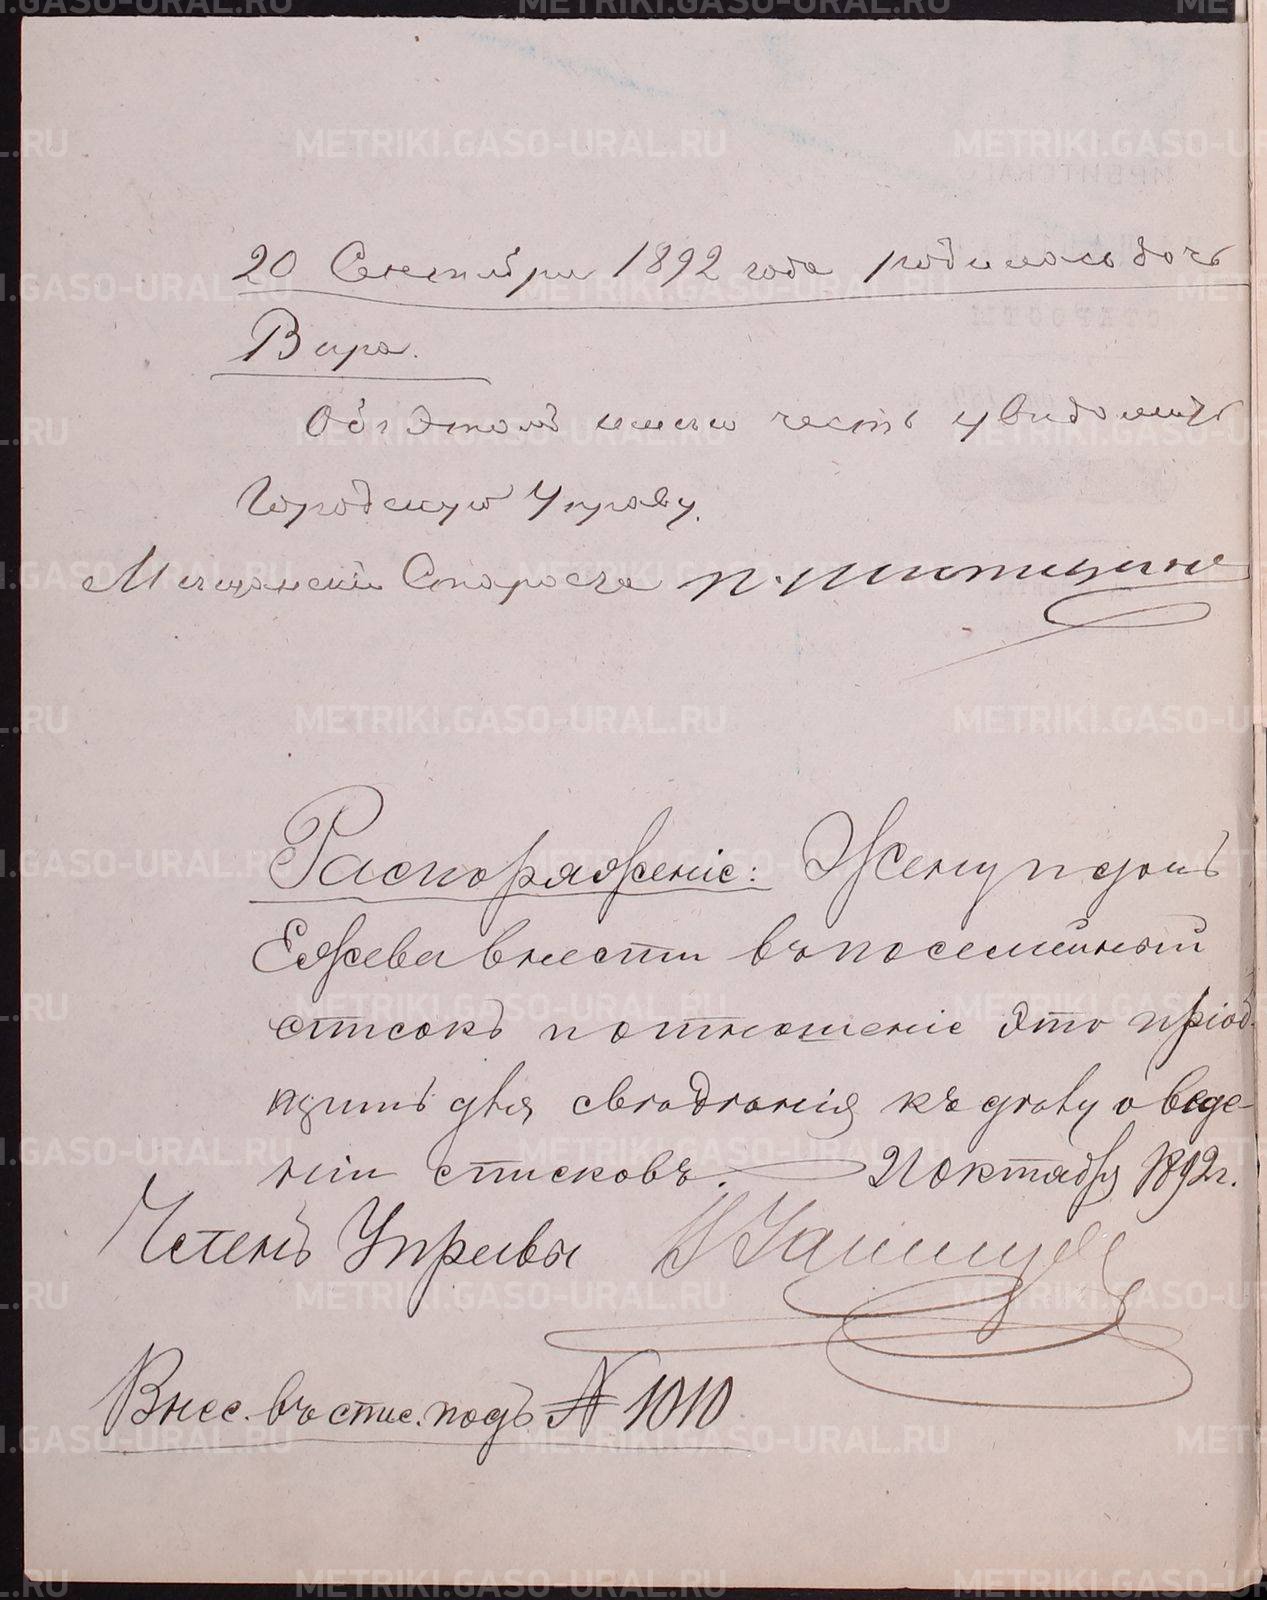 20 Сентября 1892 года родилась дочь
Вира.
Объ Этомъ имею честь увидомить
Городскую Управу.
Мещанский Староста
Распоряженіе: Жену и дочь
Ежева внести въ посемейный
списокъ и отношеніе Это пріоб-
щить для свѣдѣнія къ дѣлу о веде-
ніи списковъ. 21 октября 1892 г.
Членъ Управы
Внес. въ спис. подъ № 1010
METRIKI.GASO-URAL.RU